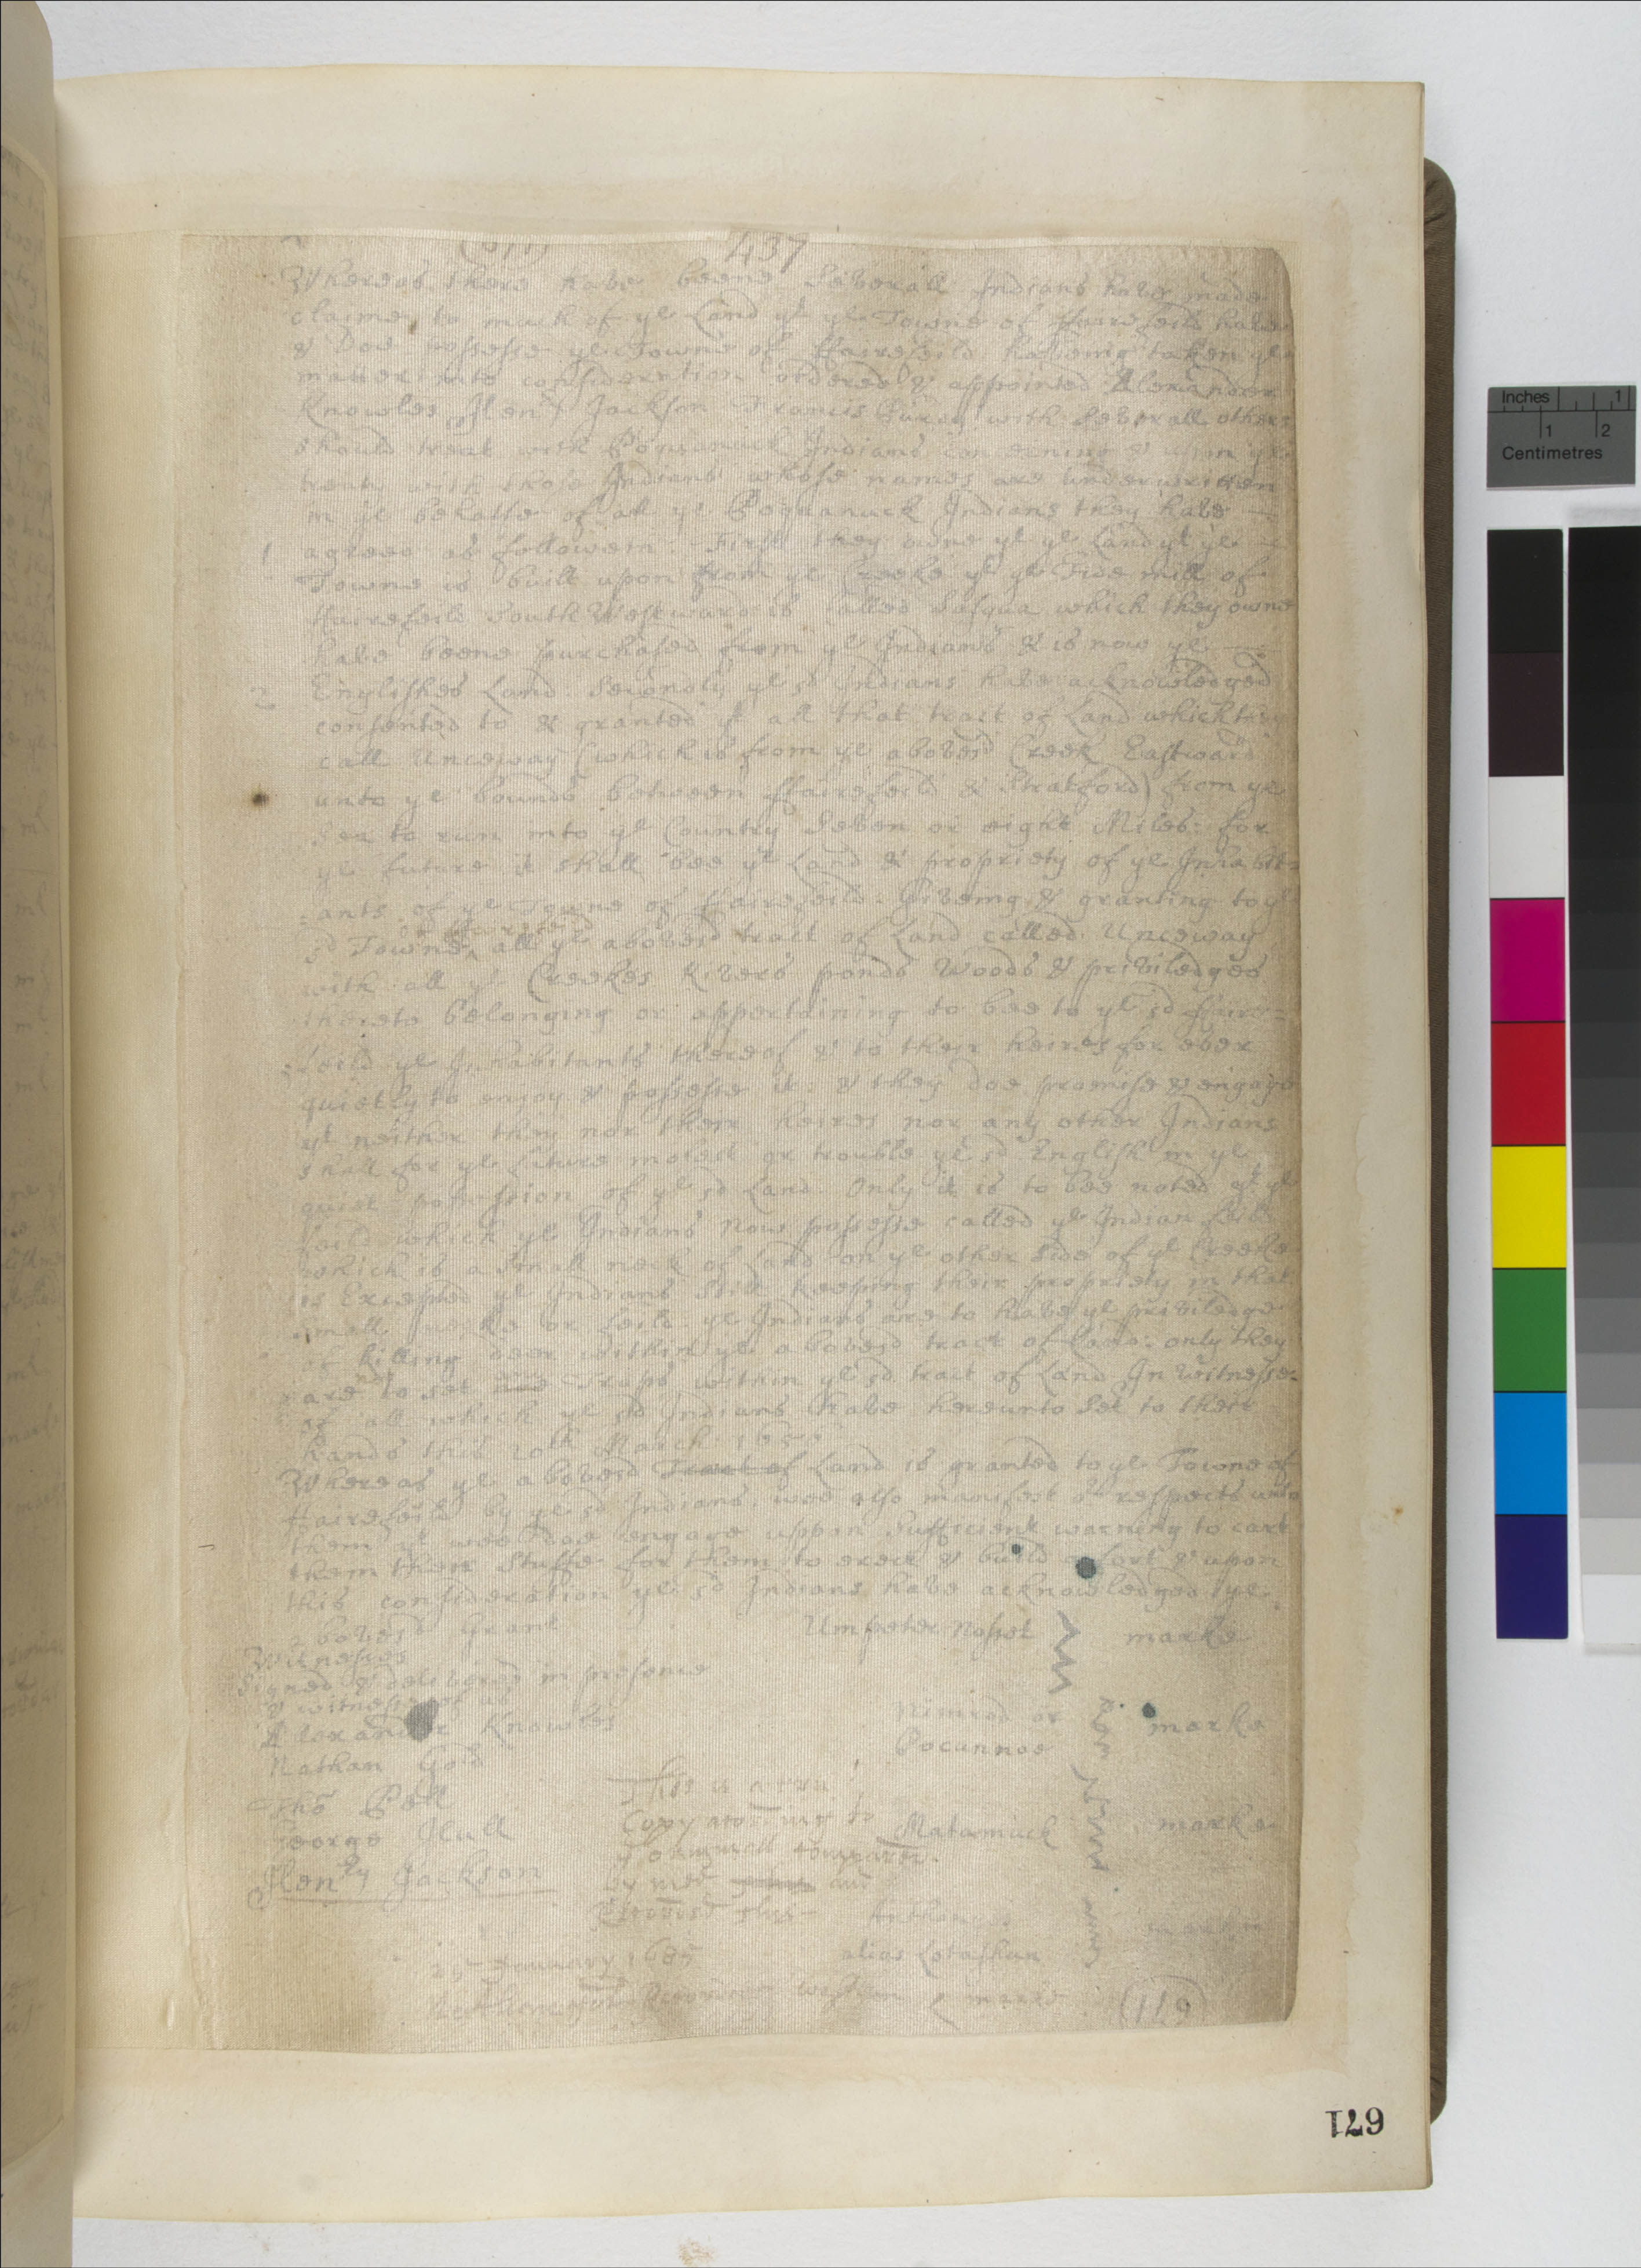 437
Whereas there have beene Severall Indians have made
claime to much of ye Land yt ye Towne of ffairefeild have
& Doe possesse ye Towne of ffairefeild haveing taken ye
matter into consideration ordered & appointed Alexander
Knowles Henry Jackson Francis with Severall others
should treat with Poquanuck Indians concerning & upon ye
treaty with those Indians whose names are underwritten
in ye behalfe of all ye Poquanuck Indians they have
1 agreed as followeth First they owne yt ye Land yt ye
Towne is built upon from ye Creeke yt ye Tide mill of
ffairefeild South Westward is called Sasqua which they owne
have beene purchased from ye Indians & is now ye
2 Englishes Land Secondly ye sd Indians have acknowledged
consented to & granted yt all that tract of Land which they
call Unceway (which is from ye abovesd Creek Eastward
unto ye bounds between ffairefeild & Stratford) from ye
Sea to run into ye Country Seven or eight Miles: for
ye future it shall bee ye Land & propriety of ye Inhabit=
=ants of ye Towne of ffairefeild: Giveing & granting to ye
sd Towne all ye abovesd tract of Land called Unceway
with all ye Creekes Rivers ponds Woods & priviledges
thereto belonging or appertaining to bee to ye sd ffaire=
=feild ye Inhabitants thereof & to their heires for ever
quietly to enjoy & possesse it: & they doe promise & engage
yt neither they nor their heires nor any other Indians
shall for ye future molest or trouble ye sd English in ye
quiet possession of ye sd Land. Only it is to bee noted yt ye
feild which ye Indians now possesse called ye Indian feild
which is a Small neck of Land on ye other side of ye Creeke
is Excepted ye Indians Still keeping their propriety in that
small necke or feild ye Indians are to have ye priviledge
of killing deer within ye abovesd tract of Land: only they
are to set noe Traps within ye sd tract of Land In Witnesse
of all which ye sd Indians have hereunto Set to their
hands this 20th March 165
Whereas ye abovesd Tract of Land is granted to ye Towne of
ffairefeild by ye sd Indians, wee also manifest or respects unto
them yt wee doe engage uppon Sufficient warning to cart
them their Stuffe for them to erect & build a fort & upon
this consideration ye sd Indians have acknowledged ye
abovesd Grant Umpeter Nosset marke
Witnesses
Signed & delivered in presence
& witnesse of us
Alexander Knowles Nimrod or marke
Nathan Gold Pocunnoe
Tho Pell This is a true
George Hull Copy according to Matamuck marke
Henry Jackson compared
by mee and
Anthony
25 January 1685 alias Lotashun
Recorder marke
(671)
671